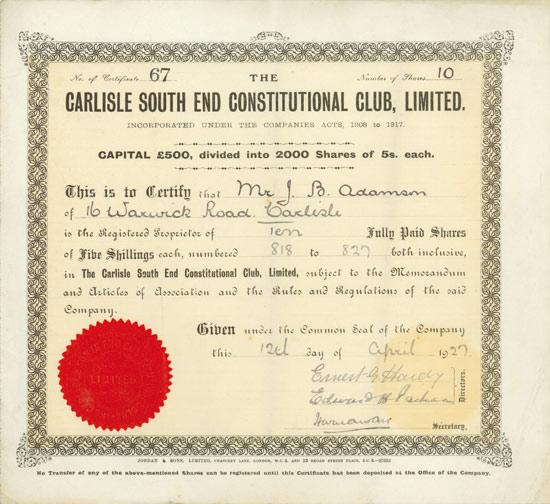 No. of Certificate 67 THE Number of Shares 10
CARLISLE SOUTH END CONSTITUTIONAL CLUB, LIMITED.
INCORPORATED UNDER THE COMPANIES ACTS, 1908 to 1917.
CAPITAL £500, divided into 2000 Shares of 5s. each.
This is to Certify that Mr J. B. Adamson
of 16 Warwick Road. Carlisle
is the Registered Proprietor of Ten Fully Paid Shares
of Five Shillings each, numbered 818 to 827 both inclusive,
in The Carlisle South End Constitutional Club, Limited, subject to the Memorandum
and Articles of Association and the Rules and Regulations of the said
Company.
Given under the Common Seal of the Company
this 12th day of April 1927.
Ernest G Hardy
Edward H
Directors.
Secretary.
LIMITED
JORDAN & SONS, LIMITED, CHANCERY LANE, LONDON, W.C.2, AND 13 BROAD STREET PLACE, E.C.2.
No Transfer of any of the above-mentioned Shares can be registered until this Certificate has been deposited at the Office of the Company.